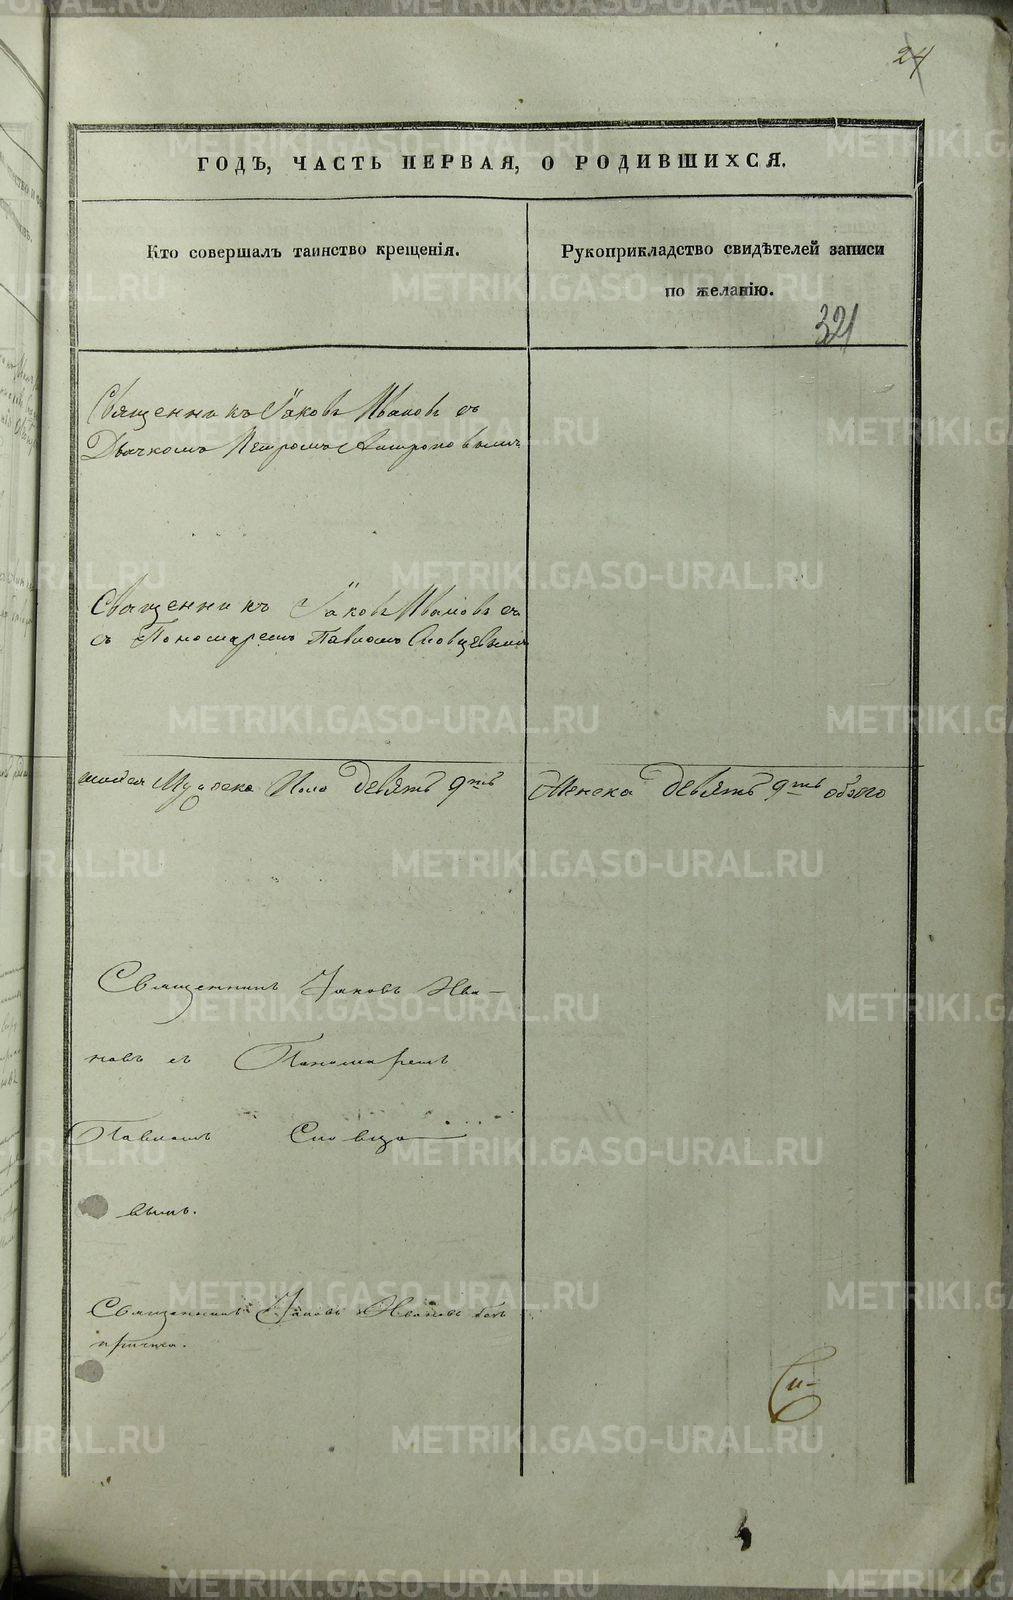 24
ГОДЪ, ЧАСТЬ ПЕРВАЯ, О РОДИВШИХСЯ.
Кто совершалъ таинство крещенія.
Рукоприкладство свидѣтелей записи
по желанію.
321
Священникъ Іаковъ Ивановъ съ
Дьячкомъ Петромъ Антроповымъ
Священникъ Іаковъ Ивановъ съ
съ Пономаремъ Павломъ Словцовымъ
Мужеска Пола девять 9ть
Женска девять 9ть обоего
Священникъ Іаковъ Ива-
новъ съ Пономаремъ
Павломъ Словцо-
вымъ.
Священникъ Іаковъ Ивановъ безъ
причта.
METRIKI.GASO-URAL.RU